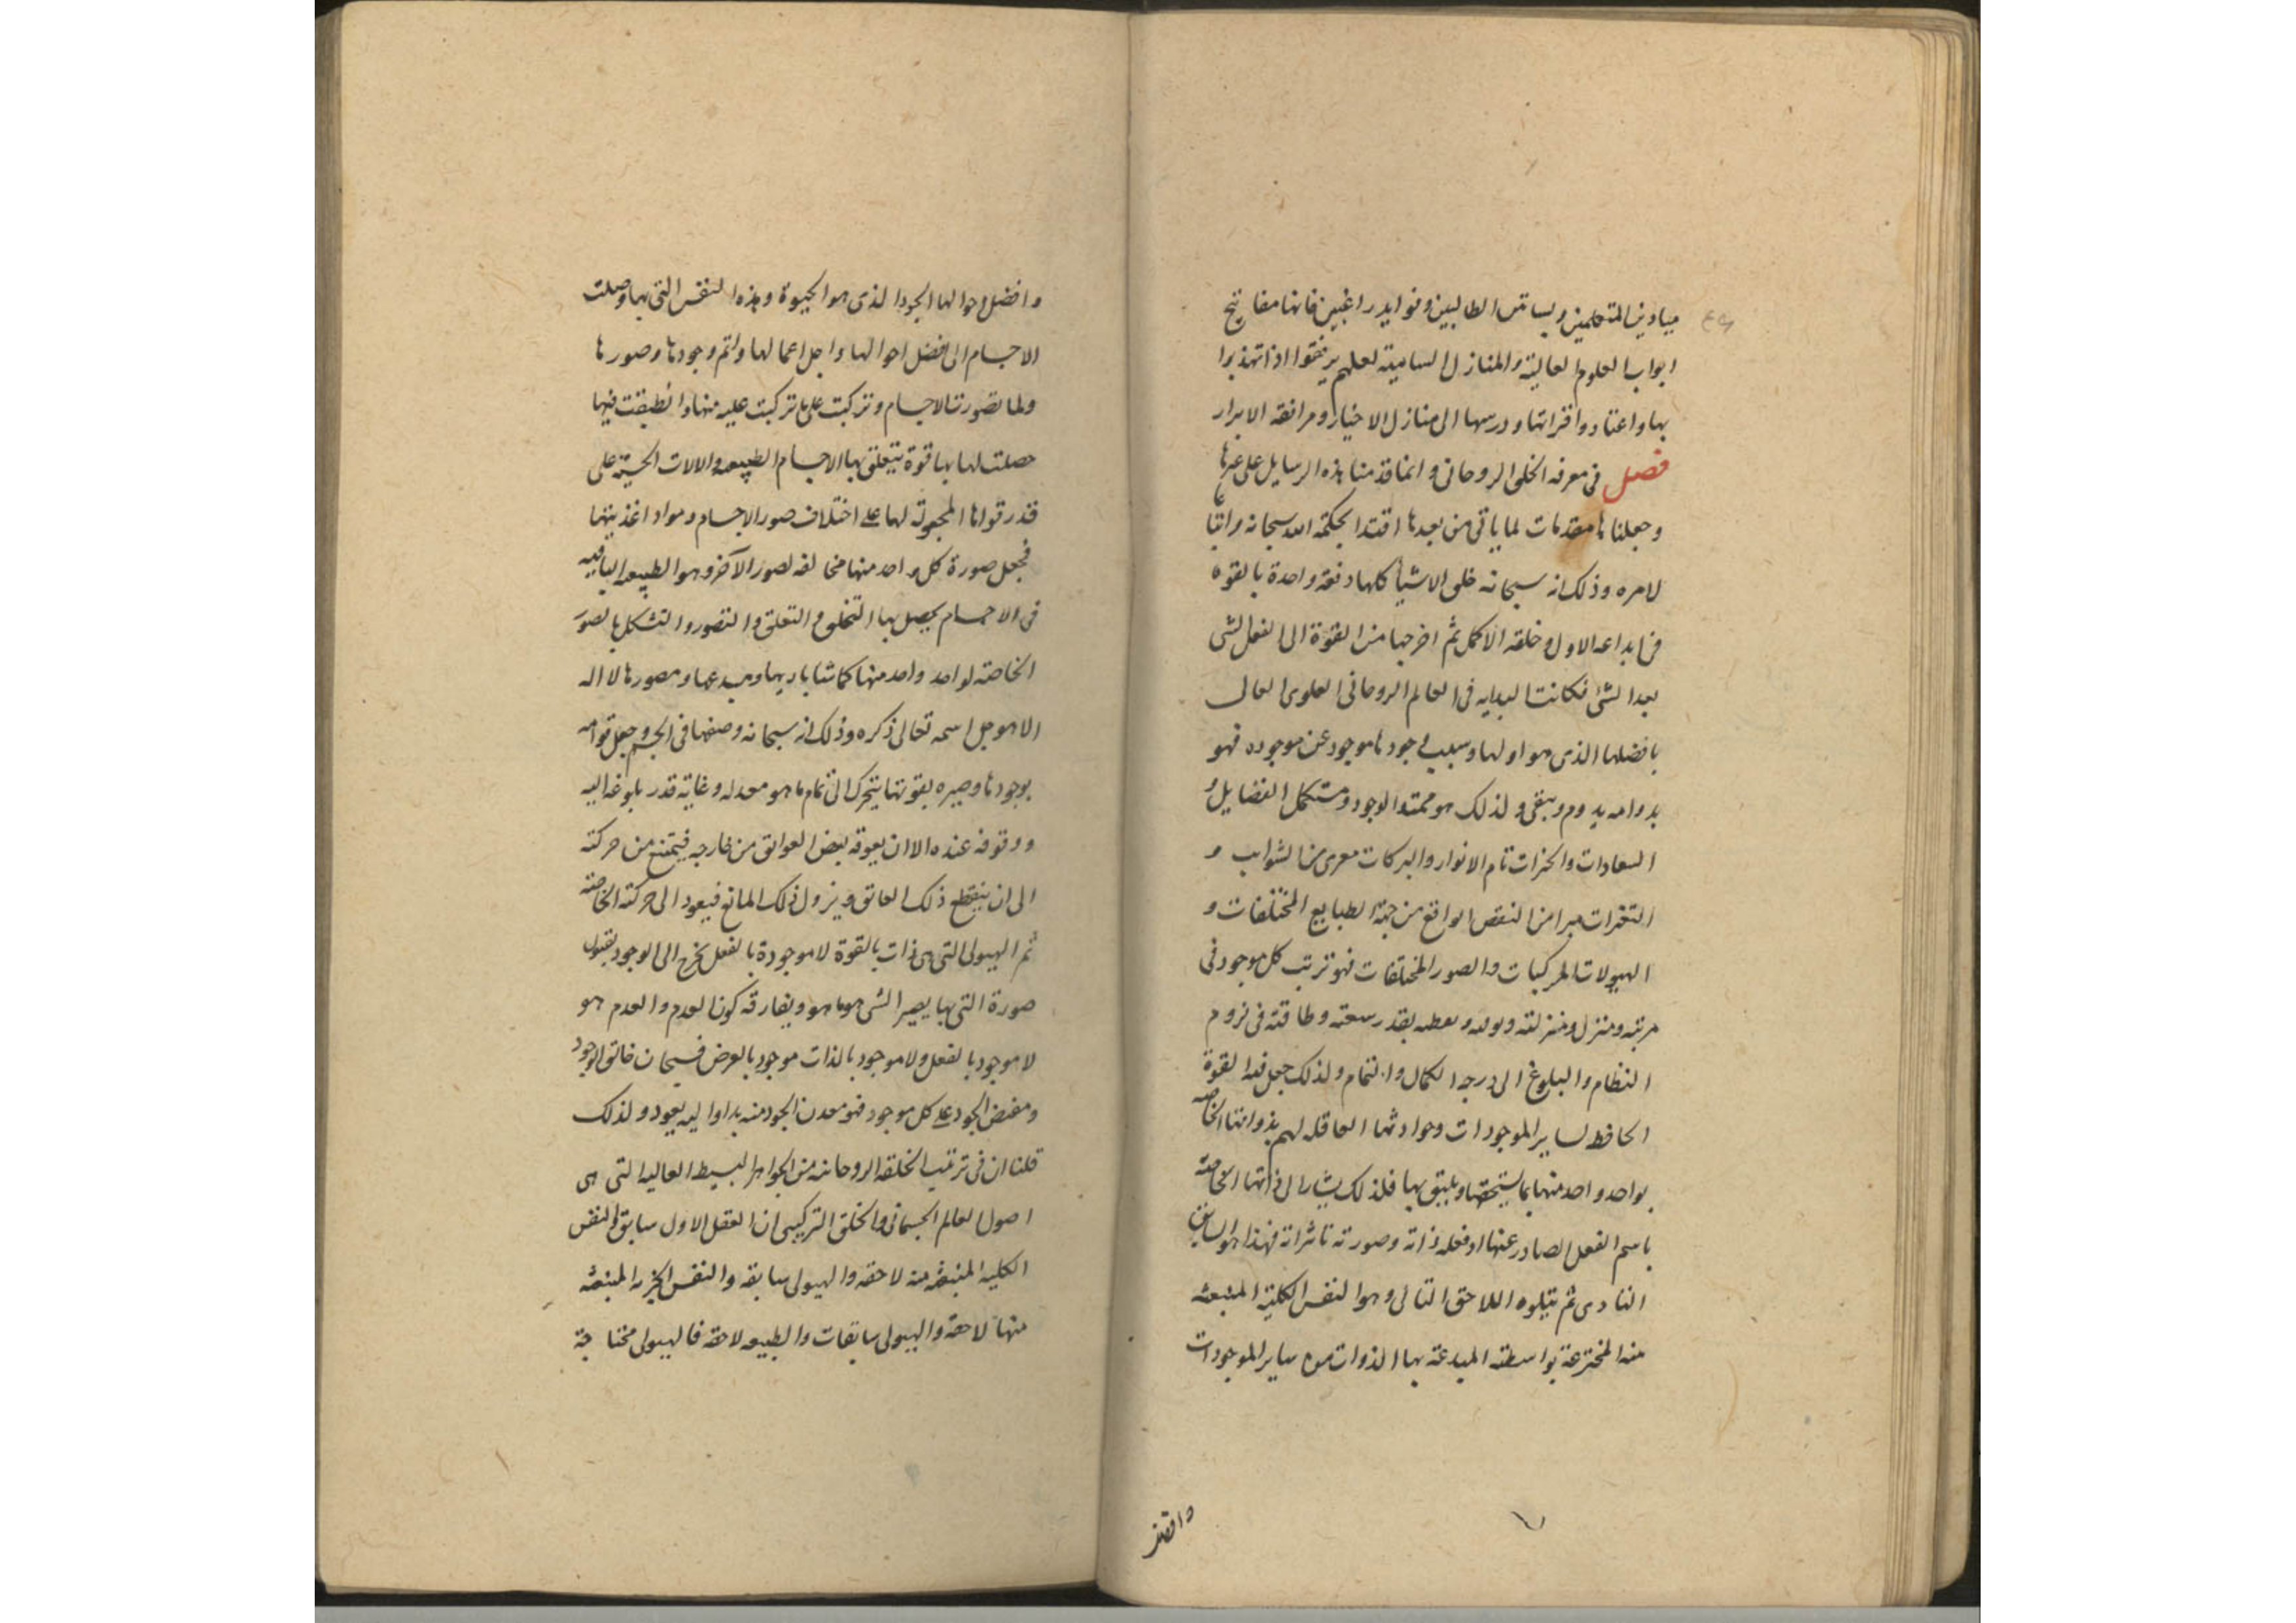 ميادين المتعلمين وبساتين الطالبين وفوايد راغبين فانها مفاتيح
ابواب العلوم العالية والمنازل السامية لعلهم يرتقوا اذا تهذبوا
بها واعتادوا قراتها ودرسها الى منازل الاخيار ومرافقه الابرار
فصل فى معرفه الخلق الروحانى وانما قدمنا هذه الرسايل على غيرها
وجعلناها مقدمات لما ياتى من بعدها اقتدا بحكمة الله سبحانه واتباعا
لامره وذلك انه سبحانه خلق الاشيا كلها دفعة واحدة بالقوه
فى ابداعه الاول وخلقه الاكمل ثم اخرجها من القوة الى الفعل الشى
بعد الشى فكانت البدايه فى العالم الروحانى العلوى العالى
بافضلها الذى هو اولها وسبب وجودها موجود عن موجوده فهو
بدوامه يدوم ويبقى ولذلك هو ممتد الوجود ومستكمل الفضايل و
السعادات والخيرات تام الانوار والبركات معرى من الشوايب و
التغيرات مبرا من النقص الواقع من جهة الطبايع المختلفات و
الهيولات المركبات والصور المختلفات فهو ترتب كل موجود فى
مرتبه ومنزل ومنزلته ويعطيه بقدر سعته وطاقته فى لزوم
النظام والبلوغ الى درجه الكمال والتمام ولذلك جعل فيه القوة
الحافظ لساير الموجودات وحوادثها العاقله لهم بذواتها الخاصه
بواحد واحد منها بما يستحقها ويليق بها فلذلك يشار الى ذاتها الخاصة
باسم الفعل الصادر عنها اذ فعله ذاته وصورته تاثيراته فهذا هو السابق
البادى ثم يتلوه اللاحق التالى وهو النفس الكلية المنبعثه
منه المخترعة بواسطته المبدعة بها الذوات من ساير الموجودات
وافضل
وافضل احوالها الجود الذى هو الحيوة وهذه النفس التى بها وصلت
الاجسام الى افضل احوالها واجل اعمالها واتم وجودها وصورها
ولما تصورت الاجسام وتركبت على ما تركبت عليه منها وانطبقت فيها
حصلت لها بها قوة يتعلق بها الاجسام الطبيعه والالات الحسية على
قدر قواها المجعولة لها على اختلاف صور الاجسام ومواد اغذيتها
فجعل صورة كل واحد منها مخالفه لصور الاخر وهو الطبيعه الباقيه
فى الاجسام يحصل بها التخلق والتعلق والتصور والتشكل بالصور
الخاصة لواحد واحد منها كما شا باريها ومبدعها ومصورها لا اله
الا هو جل اسمه تعالى ذكره وذلك انه سبحانه وضعها فى الجسم وجعل قوامه
بوجودها وصيره بقوتها يتحرك الى تمام ما هو معد له وغاية قدر بلوغه اليه
ووقوفه عنده الا ان يعوقه بعض العوايق من خارجه فيمتنع من حركته
الى ان ينقطع ذلك العايق ويزول ذلك المانع فيعود الى حركته الخاصة
ثم الهيولى التى هى ذات بالقوة لا موجودة بالفعل يخرج الى الوجود بقبول
صورة التى بها يصير الشى هو ما هو ويفارقه كون العدم والعدم هو
لا موجود بالفعل ولا موجود بالذات موجود بالعرض فسبحان خالق الوجود
ومفيض الجود على كل موجود فهو معدن الجود منه بدا واليه يعود ولذلك
قلنا ان فى ترتيب الخلقه الروحانيه من الجواهر البسيط العاليه التى هى
اصول العالم الجسمانى والخلق التركيبى ان العقل الاول سابق والنفس
الكليه المنبعثه منه لاحقه والهيولى سابقه والنفس الجزيه المنبعثه
منها لاحقة والهيولى سابقات والطبيعه لاحقه فالهيولى محتاجة